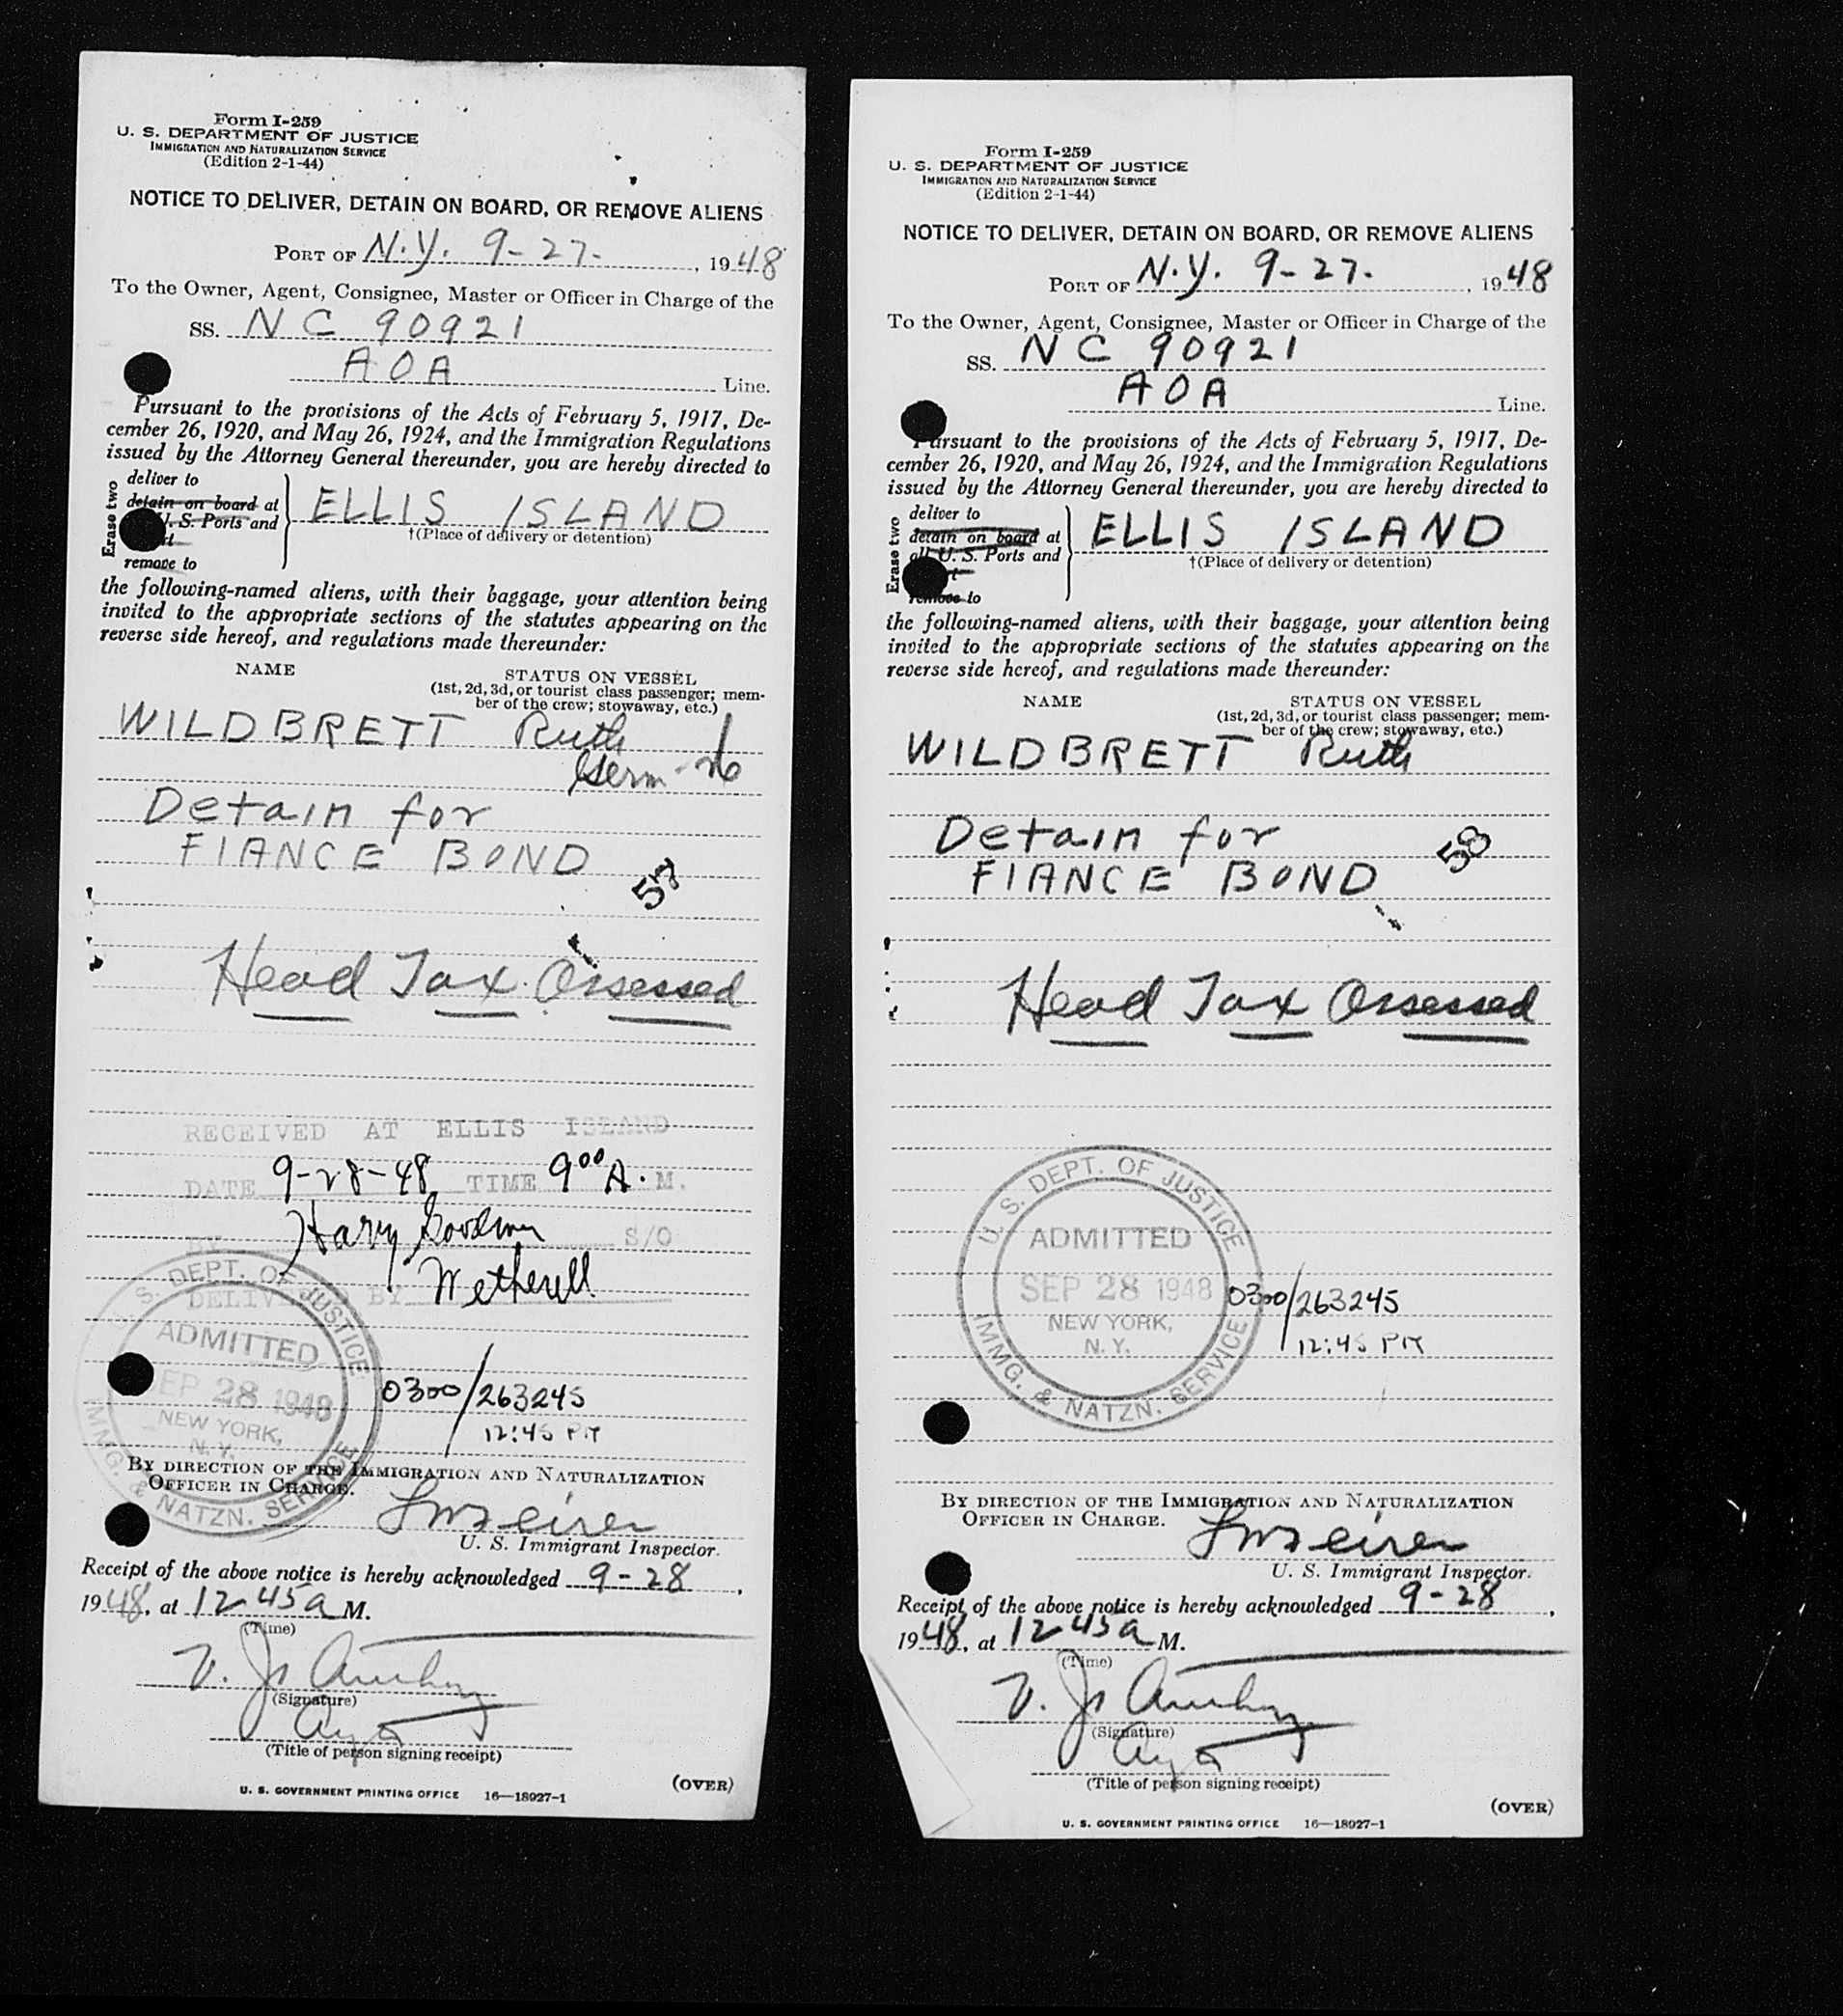 Form I-259
U. S. DEPARTMENT OF JUSTICE
IMMIGRATION AND NATURALIZATION SERVICE
(Edition 2-1-44)
NOTICE TO DELIVER, DETAIN ON BOARD, OR REMOVE ALIENS
PORT OF N.Y. 9-27- , 1948
To the Owner, Agent, Consignee, Master or Officer in Charge of the
SS. NC 90921
AOA Line.
Pursuant to the provisions of the Acts of February 5, 1917, De-
cember 26, 1920, and May 26, 1924, and the Immigration Regulations
issued by the Attorney General thereunder, you are hereby directed to
Erase two
deliver to
detain on board at
U. S. Ports and
remove to
ELLIS ISLAND
†(Place of delivery or detention)
the following-named aliens, with their baggage, your attention being
invited to the appropriate sections of the statutes appearing on the
reverse side hereof, and regulations made thereunder:
NAME
STATUS ON VESSEL
(1st, 2d, 3d, or tourist class passenger; mem-
ber of the crew; stowaway, etc.)
WILDBRETT Ruth
Germ
Detain for
FIANCE BOND
57
Head Tax Assessed
RECEIVED AT ELLIS ISLAND
DATE 9-28-48 TIME 9:00 A. M.
BY Harry Goodwin S/O
DELIV BY Wetherell
U. S. DEPT. OF JUSTICE
ADMITTED
SEP 28 1948
NEW YORK,
N. Y.
IMMG. & NATZN. SERVICE
0300/263245
12:45 PM
BY DIRECTION OF THE IMMIGRATION AND NATURALIZATION
OFFICER IN CHARGE.
U. S. Immigrant Inspector.
Receipt of the above notice is hereby acknowledged 9-28 ,
1948, at 12 45 a M.
(Time)
(Signature)
(Title of person signing receipt)
(OVER)
U. S. GOVERNMENT PRINTING OFFICE 16—18927-1
Form I-259
U. S. DEPARTMENT OF JUSTICE
IMMIGRATION AND NATURALIZATION SERVICE
(Edition 2-1-44)
NOTICE TO DELIVER, DETAIN ON BOARD, OR REMOVE ALIENS
PORT OF N.Y. 9-27- , 1948
To the Owner, Agent, Consignee, Master or Officer in Charge of the
SS. NC 90921
AOA Line.
Pursuant to the provisions of the Acts of February 5, 1917, De-
cember 26, 1920, and May 26, 1924, and the Immigration Regulations
issued by the Attorney General thereunder, you are hereby directed to
Erase two
deliver to
detain on board at
all U. S. Ports and
remove to
ELLIS ISLAND
†(Place of delivery or detention)
the following-named aliens, with their baggage, your attention being
invited to the appropriate sections of the statutes appearing on the
reverse side hereof, and regulations made thereunder:
NAME
STATUS ON VESSEL
(1st, 2d, 3d, or tourist class passenger; mem-
ber of the crew; stowaway, etc.)
WILDBRETT Ruth
Detain for
FIANCE BOND
58
Head Tax Assessed
U. S. DEPT. OF JUSTICE
ADMITTED
SEP 28 1948
NEW YORK,
N. Y.
IMMG. & NATZN. SERVICE
0300/263245
12:45 PM
BY DIRECTION OF THE IMMIGRATION AND NATURALIZATION
OFFICER IN CHARGE.
U. S. Immigrant Inspector.
Receipt of the above notice is hereby acknowledged 9-28 ,
1948, at 12 45 a M.
(Time)
(Signature)
(Title of person signing receipt)
(OVER)
U. S. GOVERNMENT PRINTING OFFICE 16—18927-1